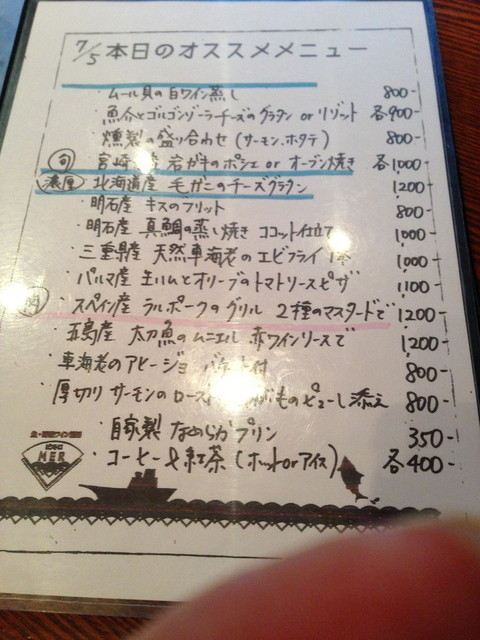 7/5 本日のオススメメニュー
・ムール貝の白ワイン蒸し 800-
・魚介とゴルゴンゾーラチーズのグラタン or リゾット 各900-
・燻製の盛り合わせ (サーモン、ホタテ) 800-
旬 ・宮崎産 岩ガキのポシェ or オーブン焼き 各1000-
濃厚 ・北海道産 毛ガニのチーズグラタン 1,200-
・明石産 キスのフリット 800-
・明石産 真鯛の蒸し焼き ココット仕立て 1,000-
・三重県産 天然車海老のエビフライ 1,000-
・パルマ産 生ハムとオリーブのトマトリースピザ 1,100-
・スペイン産 ラルポークのグリル 2種のマスタードで 1,200-
・五島産 太刀魚のムニエル 赤ワインソースで 1,200-
・車海老のアヒージョ 付 800-
・厚切りサーモンのロースト ものピューレ添え 800-
・自家製 なめらかプリン 350-
・コーヒー & 紅茶 (ホット or アイス) 各400-
MER